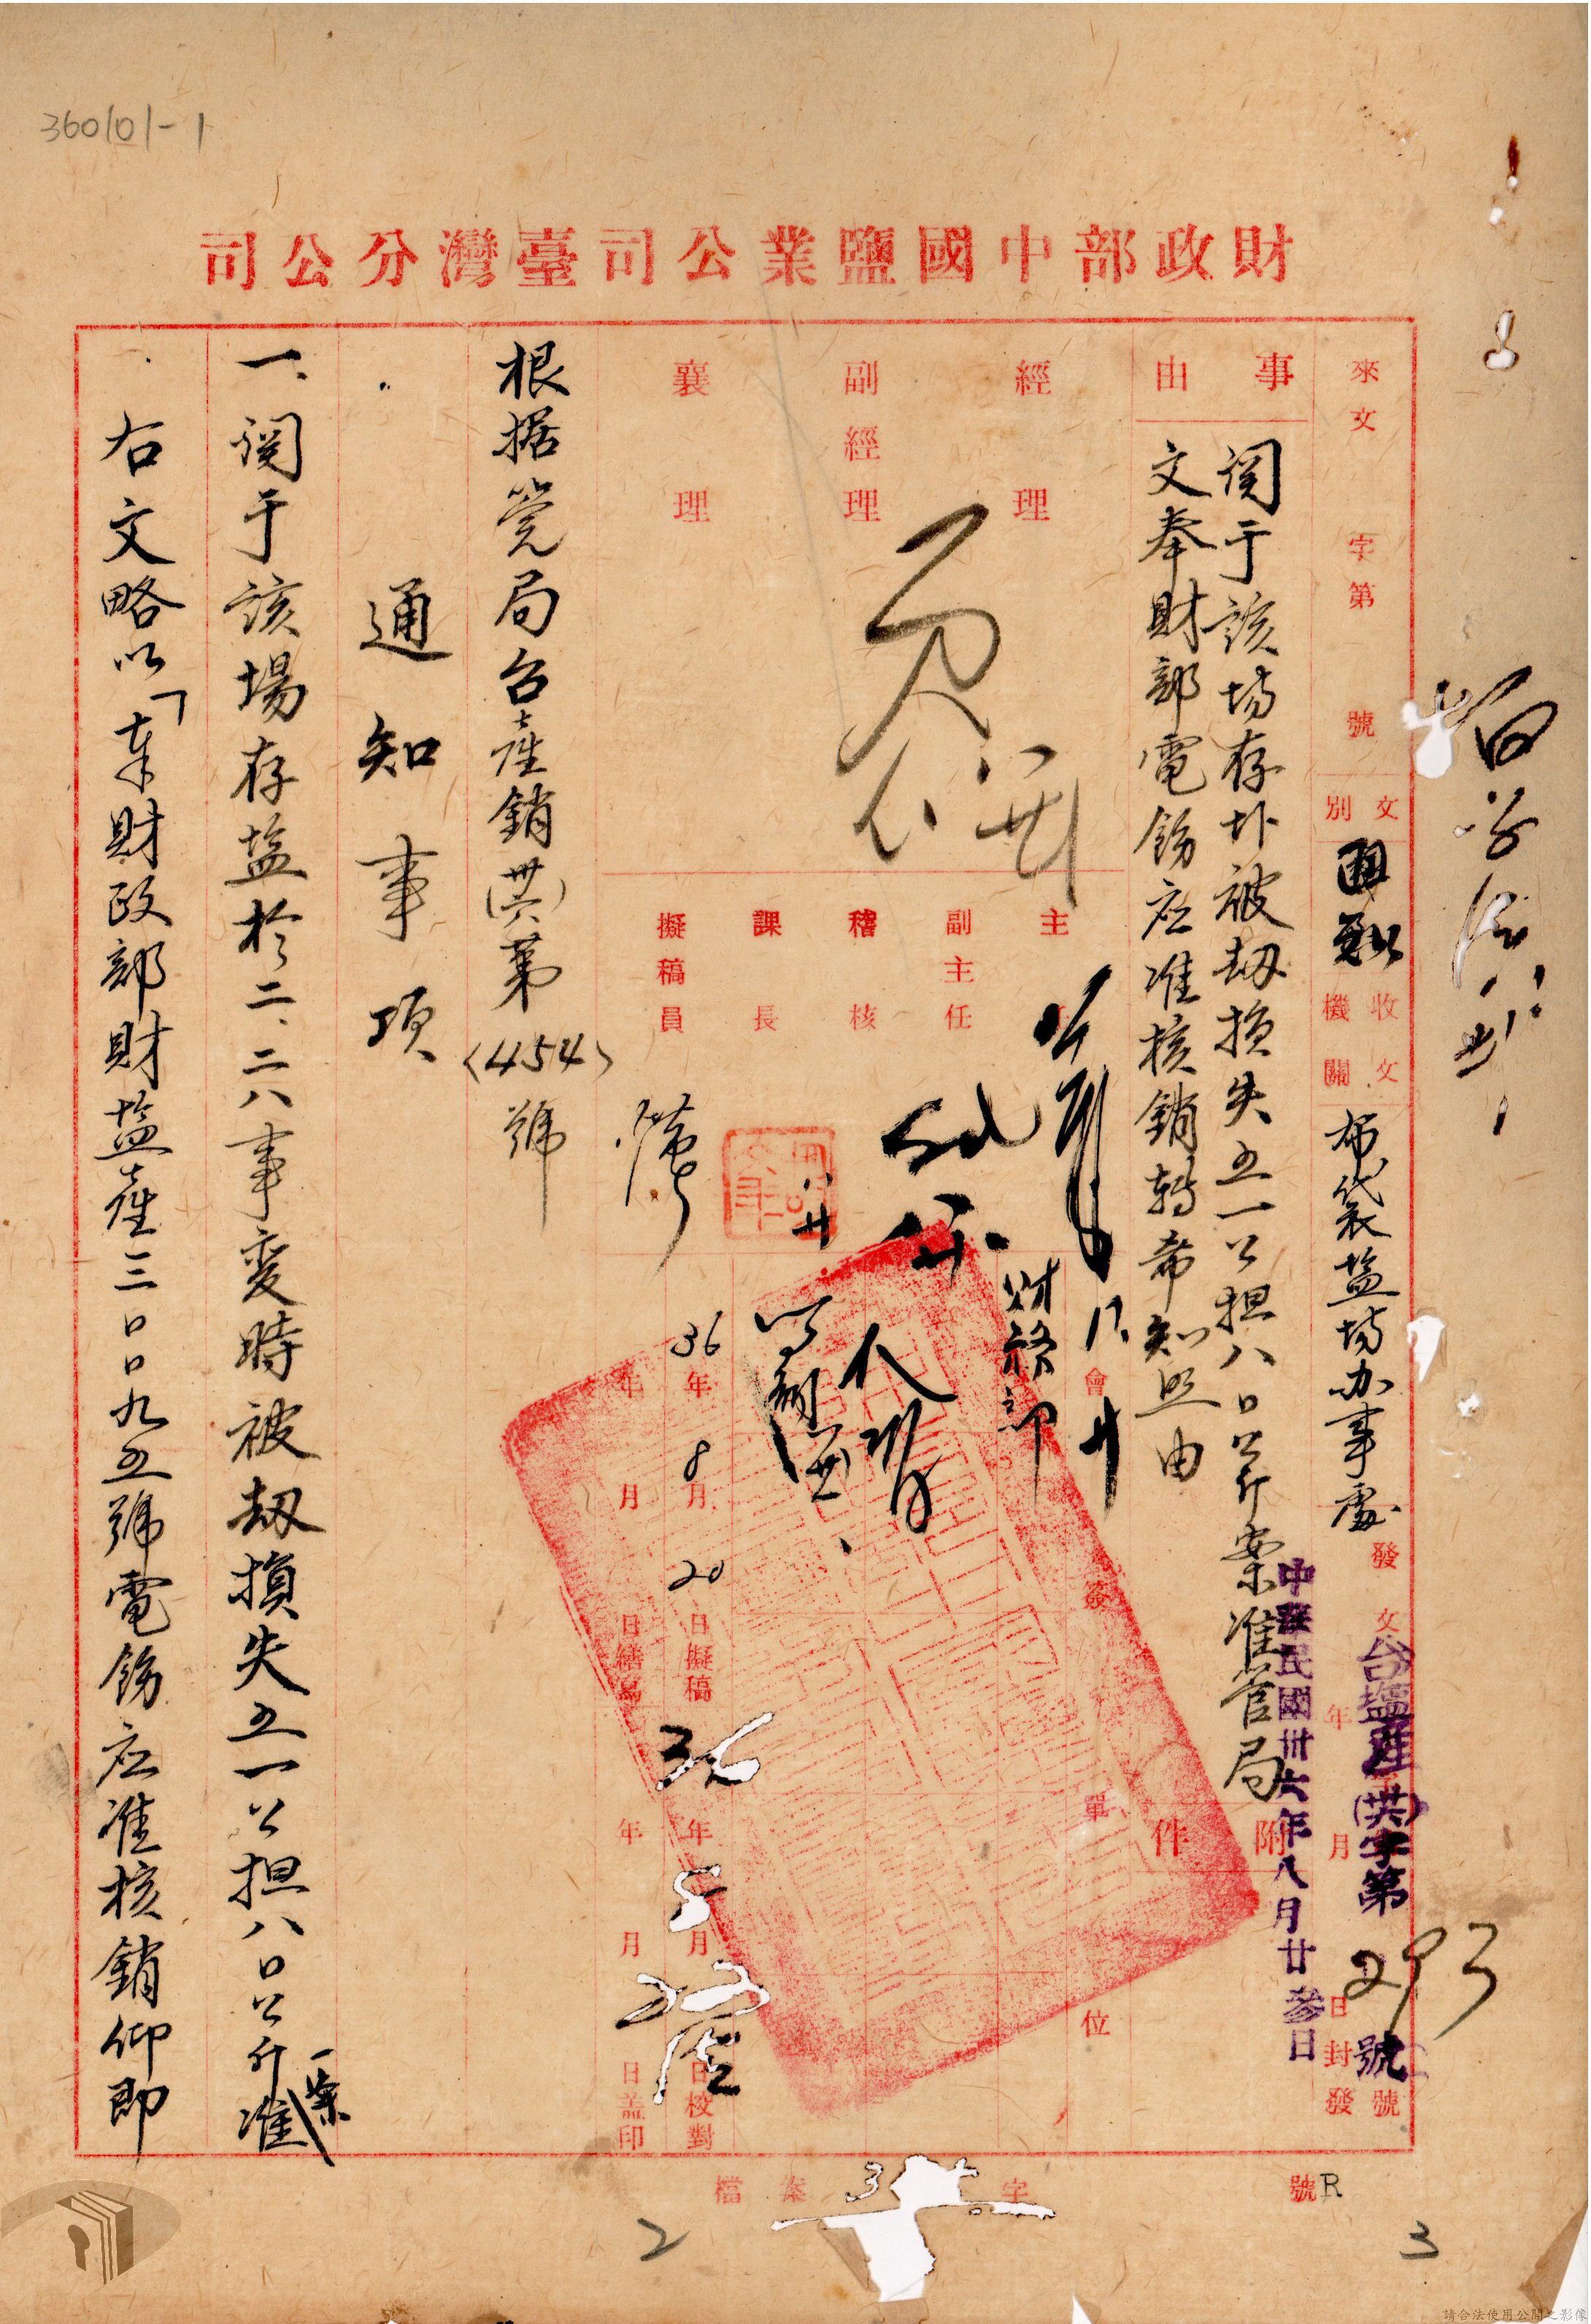 36010/-1
財政部中國鹽業公司臺灣分公司
來文 字第 號
文別
收文機關 布袋塩場办事處
發文 台塩產(卅六)字第293號
年 月 日封發
中華民國卅六年八月廿參日
事由
関于該場存圤被刼損失五一公担八口公斤案准管局
文奉財部電飭应准核銷轉希知照由
附件
經理
副經理
襄理
主任
副主任
稽核
課長
擬稿員
會簽單位
財務部
36年8月20日擬稿
年 月 日繕寫
36年8月 日校對
年 月 日蓋印
根据筦局台產銷(卅六)第(454)號
通知事項
一、関于該場存塩於二、二八事变時被刼損失五一公担八口公斤一案准
右文略以「奉財政部財塩產三口口九五號電飭应准核銷仰即
檔案 字 號R
2
3
請合法使用公開之影像